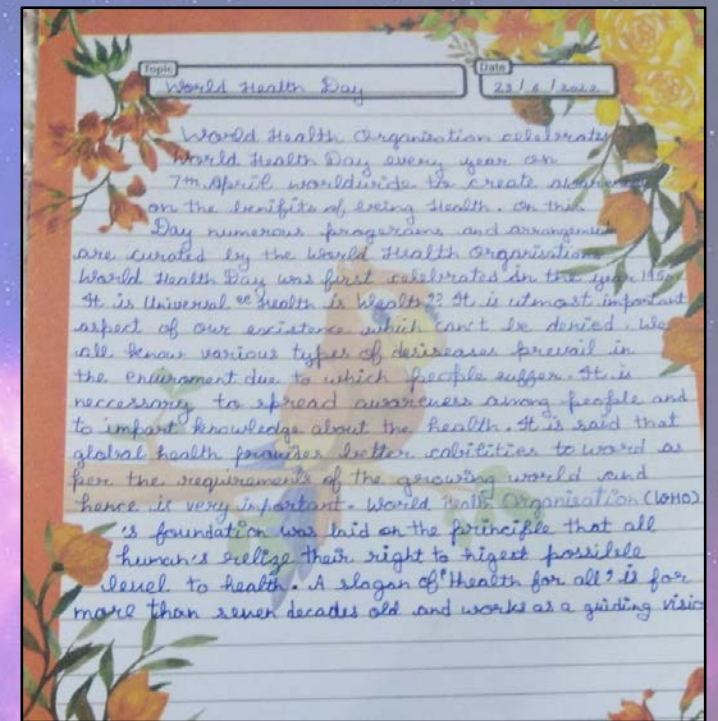 Topic
World Health Day
Date
23/6/2022
World Health Organisation celebrates
World Health Day every year on
7th April worldwide to create awareness
on the benifits of being Health. On this
Day numerous programs and arrangements
are curated by the World Health Organisation
World Health Day was first celebrated in the year 1950
It is Universal "Health is Wealth". It is utmost important
aspect of our existence which can't be denied. We
all know various types of desireases prevail in
the enviroment due to which people suffer. It is
neccessary to spread awareness among people and
to impart knowledge about the health. It is said that
global health provides better cabilities to word as
per the requirements of the growing world and
hence is very important. World Health Organisation (WHO)
's foundation was laid on the principle that all
human's relize their right to higest possible
level to health. A slogan of "Health for all" is for
more than seven decades old and works as a guiding vision